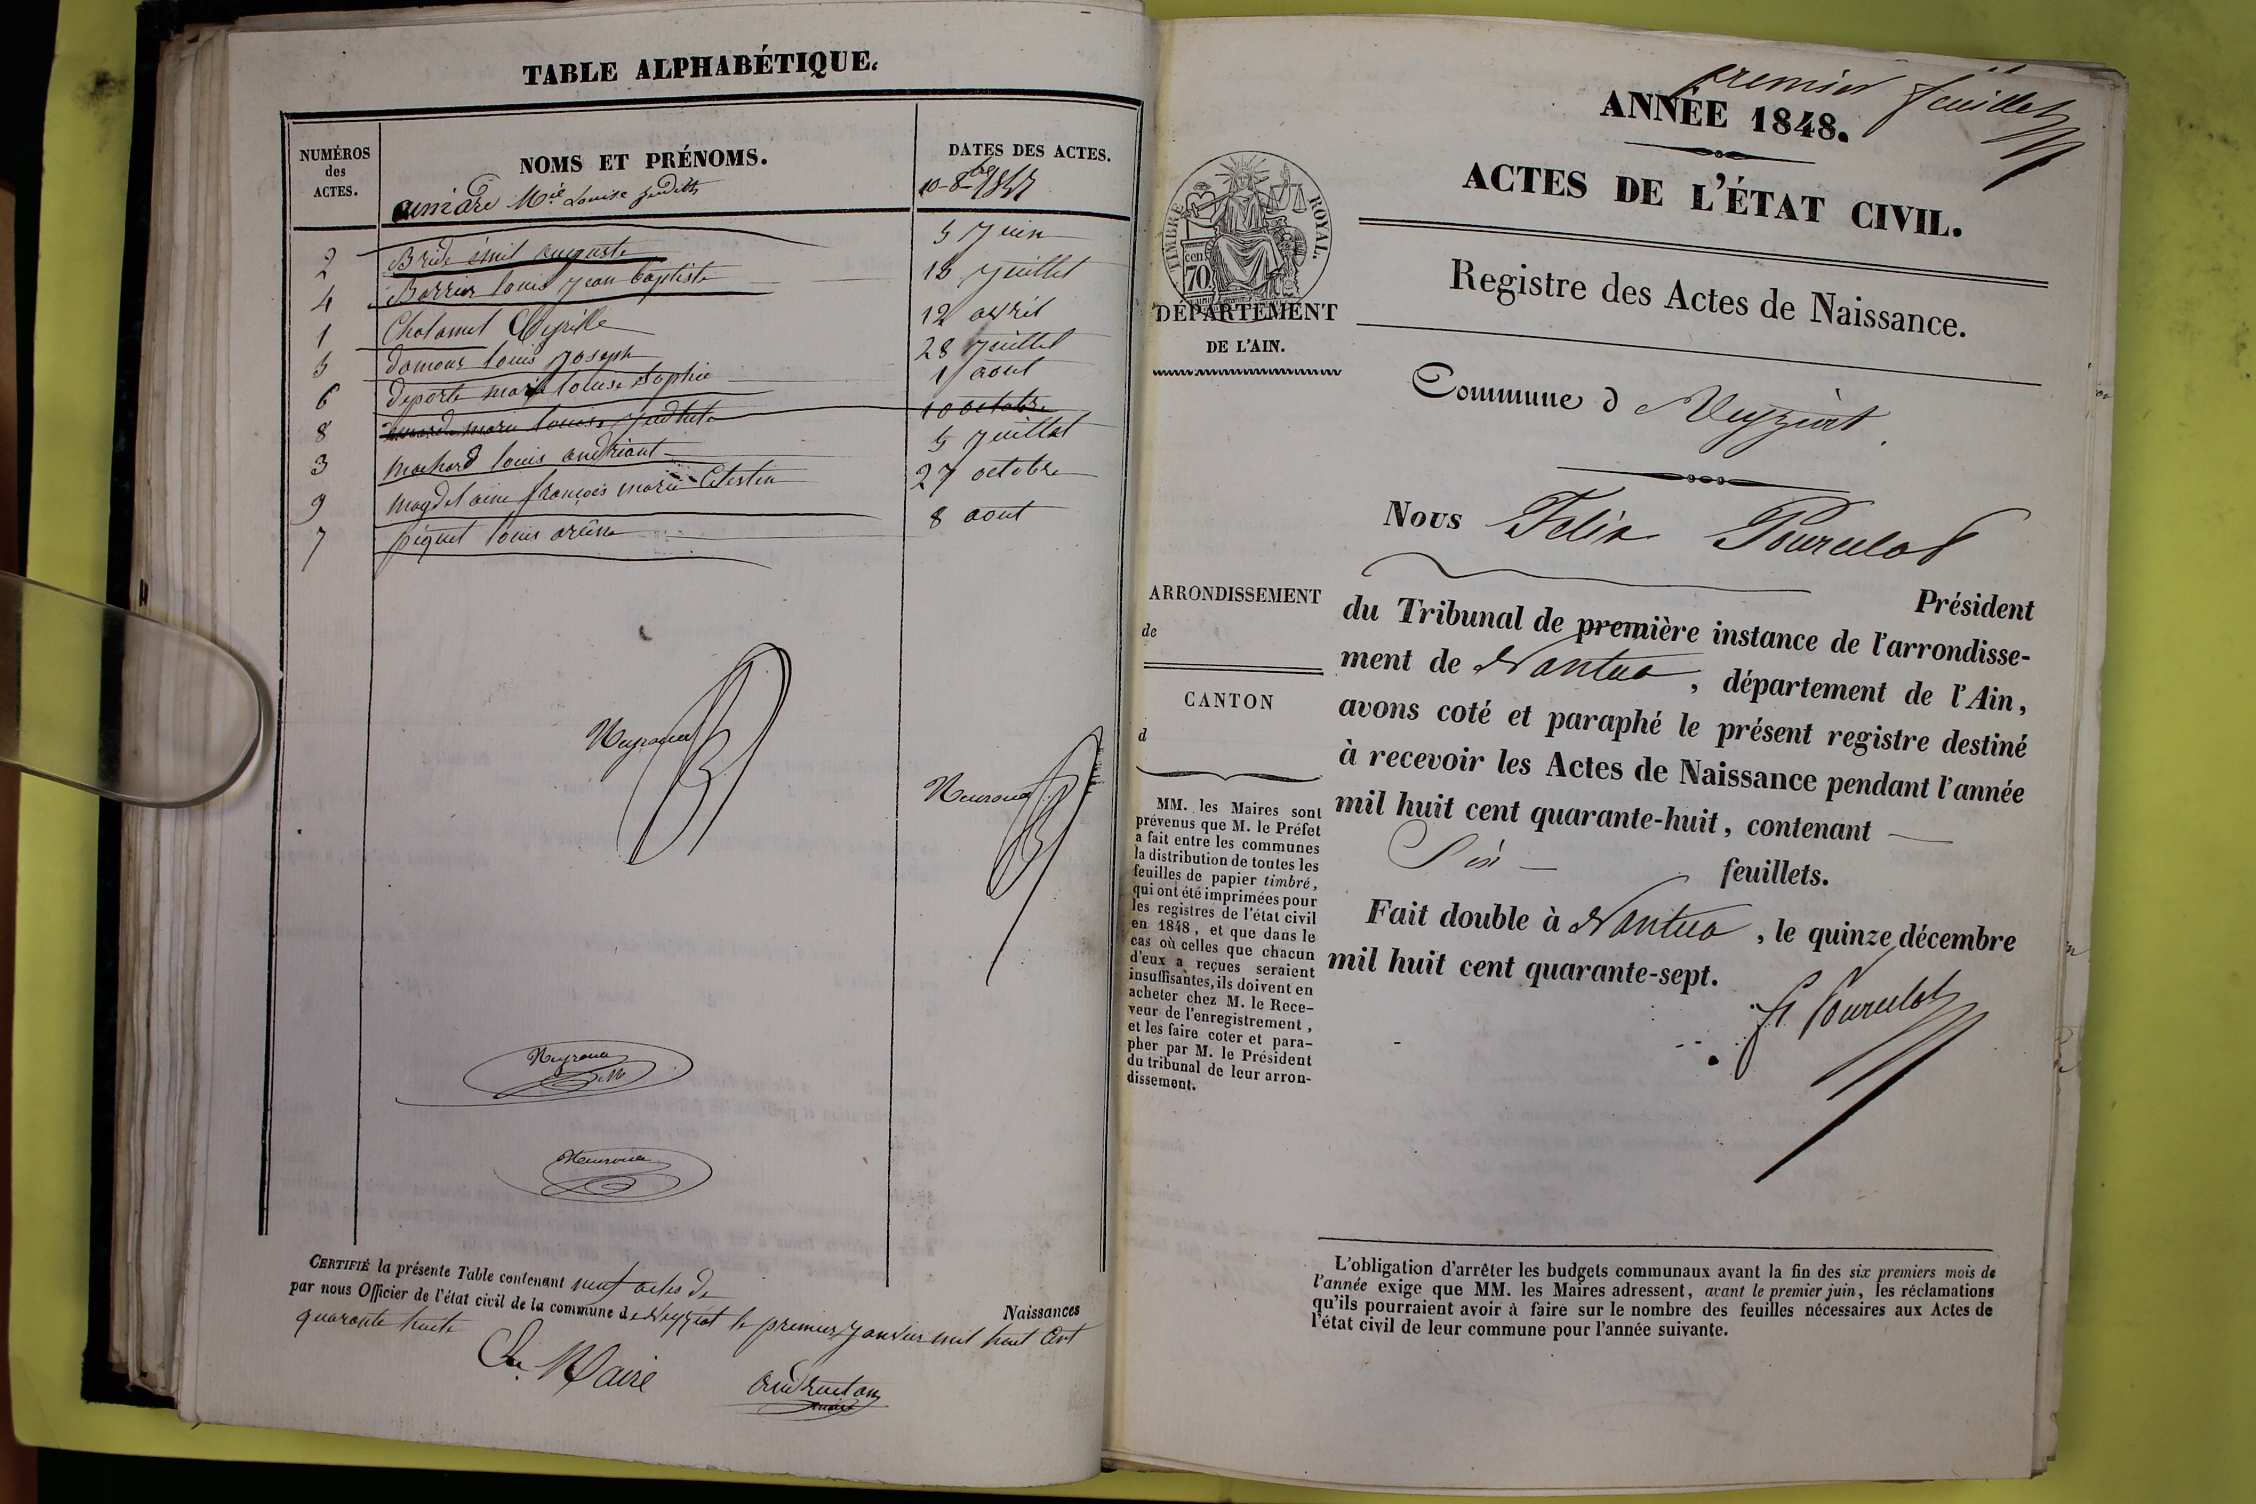 TABLE ALPHABÉTIQUE.
NUMÉROS des ACTES.
NOMS ET PRÉNOMS.
DATES DES ACTES.
Mie Louise Judith 10 8bre 1847
2 Bride émil auguste 5 Juin
4 Borrier louis jean baptiste 13 Juillet
1 Chalamel 12 avril
5 damour louis Joseph 28 Juillet
6 deporte marie louise Sophie 1 aout
8 marie louise Judhite 10 octobre
3 machard louis andréant 5 Juillet
9 magdelaine françois marie Célestin 27 octobre
7 piquet louis 8 aout
CERTIFIÉ la présente Table contenant neuf actes de Naissances
par nous Officier de l'état civil de la commune de Veyziat le premier Janvier mil huit Cent
quarante huite
Le Maire
premier feuillet
ANNÉE 1848.
ACTES DE L'ÉTAT CIVIL.
Registre des Actes de Naissance.
TIMBRE ROYAL.
70 cen
DÉPARTEMENT
DE L'AIN.
Commune d Veyziat
Nous Félix Pourcelot
Président
du Tribunal de première instance de l'arrondisse-
ment de Nantua, département de l'Ain,
avons coté et paraphé le présent registre destiné
à recevoir les Actes de Naissance pendant l'année
mil huit cent quarante-huit, contenant
Six feuillets.
Fait double à Nantua, le quinze décembre
mil huit cent quarante-sept.
F. Pourcelot
ARRONDISSEMENT
de
CANTON
d
MM. les Maires sont
prévenus que M. le Préfet
a fait entre les communes
la distribution de toutes les
feuilles de papier timbré,
qui ont été imprimées pour
les registres de l'état civil
en 1848, et que dans le
cas où celles que chacun
d'eux a reçues seraient
insuffisantes, ils doivent en
acheter chez M. le Rece-
veur de l'enregistrement,
et les faire coter et para-
pher par M. le Président
du tribunal de leur arron-
dissement.
L'obligation d'arrêter les budgets communaux avant la fin des six premiers mois de
l'année exige que MM. les Maires adressent, avant le premier juin, les réclamations
qu'ils pourraient avoir à faire sur le nombre des feuilles nécessaires aux Actes de
l'état civil de leur commune pour l'année suivante.